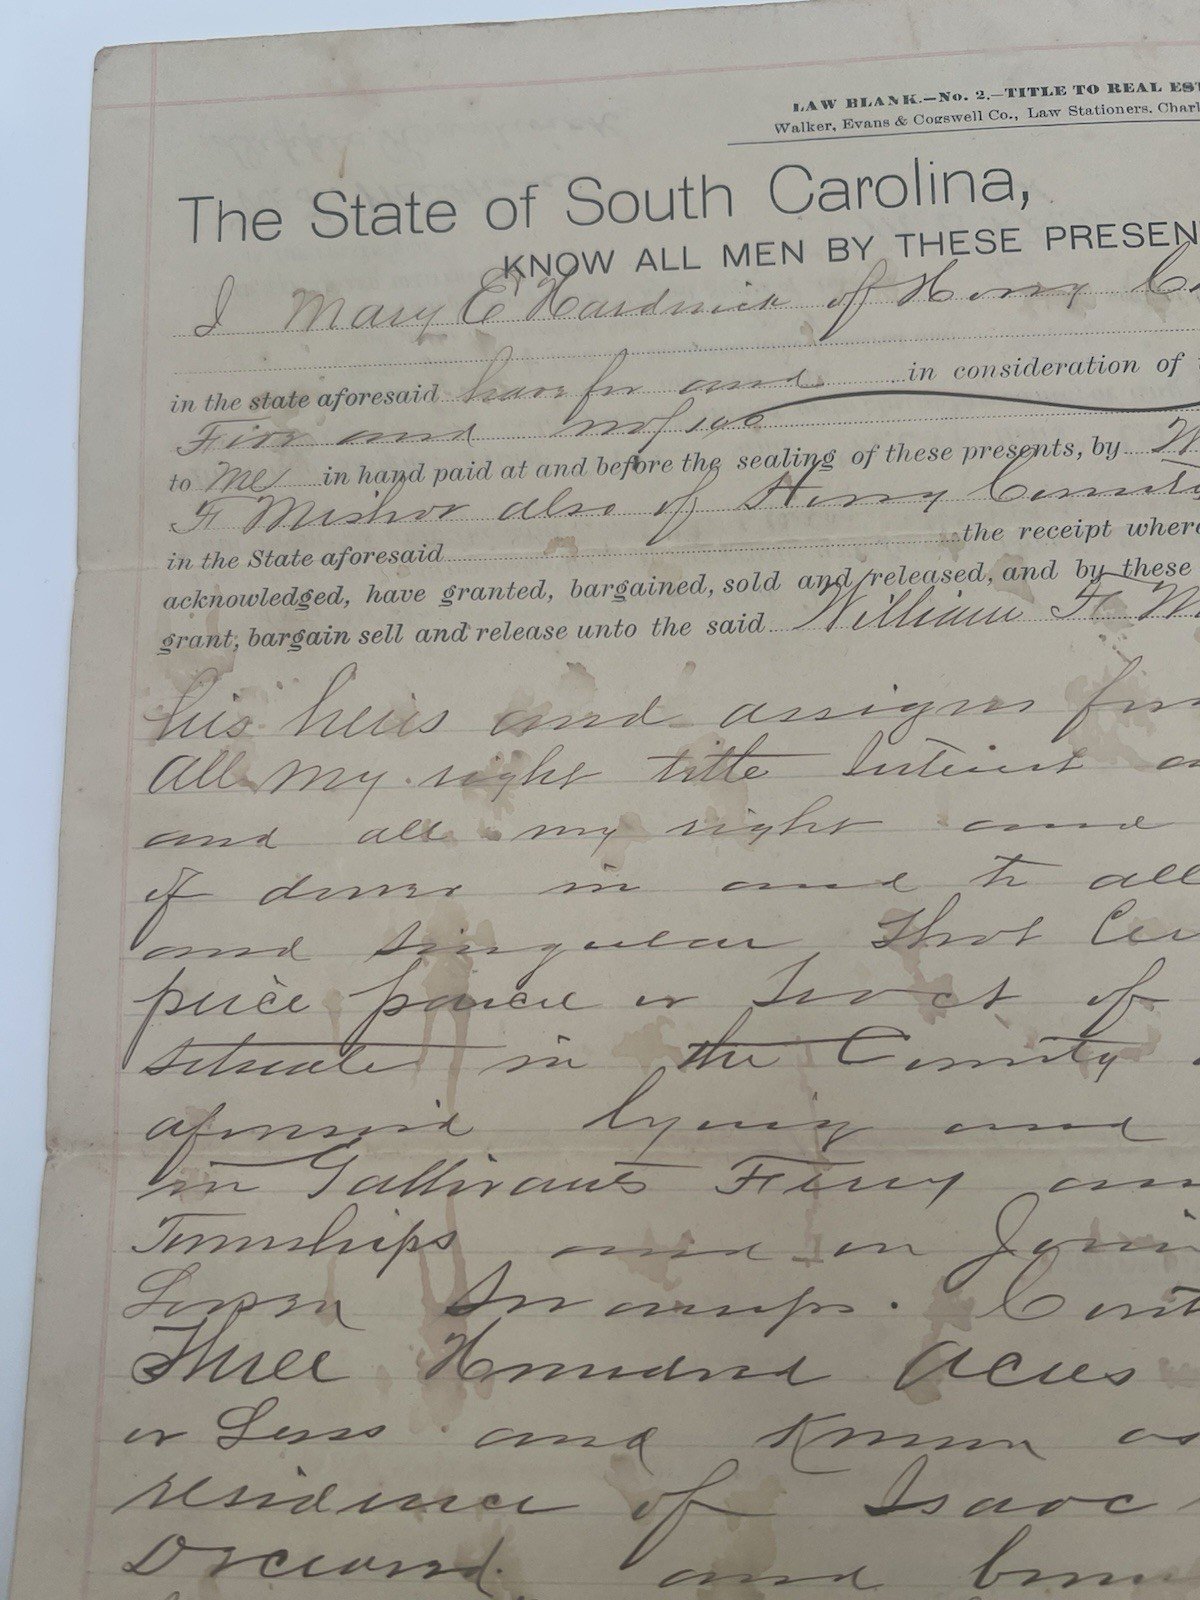 LAW BLANK.—No. 2.—TITLE TO REAL EST
Walker, Evans & Cogswell Co., Law Stationers. Charl
The State of South Carolina,
KNOW ALL MEN BY THESE PRESEN
I Mary E Hardwick of Horry Co
in the state aforesaid have for and in consideration of
Five and no/100
to me in hand paid at and before the sealing of these presents, by W
F Mishoe also of Horry County
in the State aforesaid the receipt where
acknowledged, have granted, bargained, sold and released, and by these
grant, bargain sell and release unto the said William F. M
his heirs and assigns
All my right title Interest an
and all my right and
of dower in and to all
and singular that Cer
piece parcel or tract of
situate in the County
aforesaid lying and
in Gallivants Ferry an
Townships and on
Swamps. Cont
Three Hundred Acres
or Less and Known as
residence of Isaac
Deceased. and